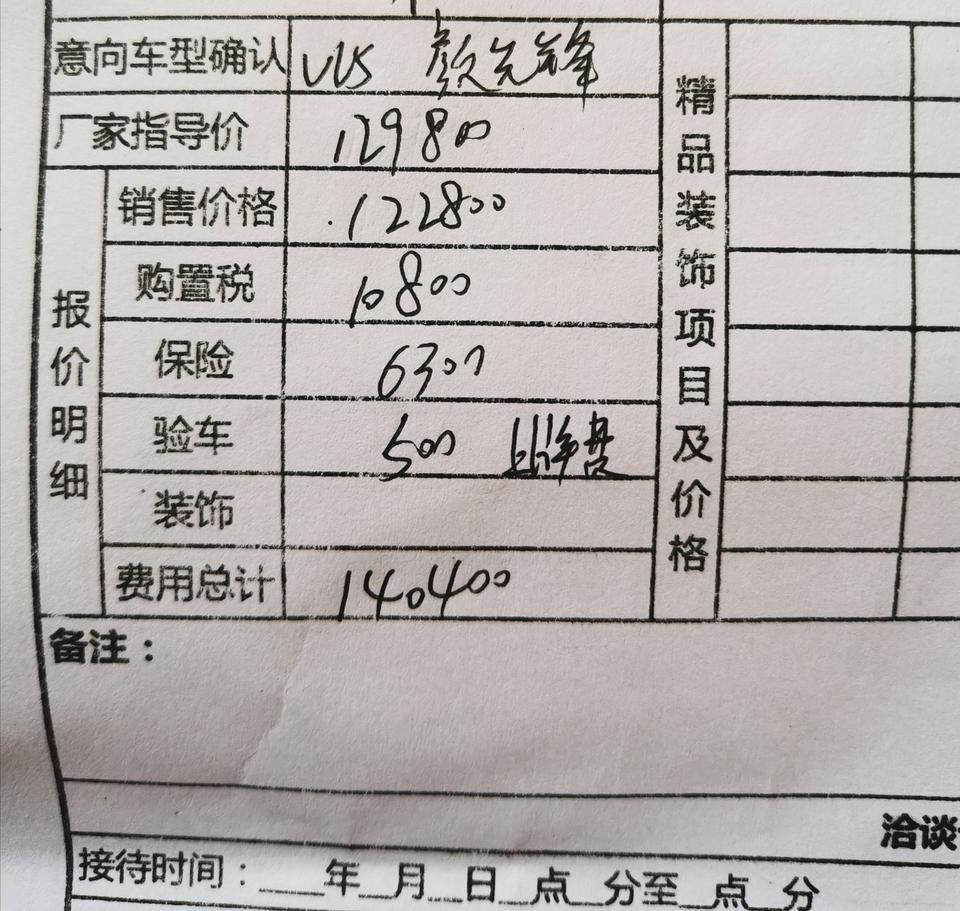 意向车型确认 VV5 颜先锋
厂家指导价 129800
报价明细
销售价格 122800
购置税 10800
保险 6300
验车 500 上牌费
装饰
费用总计 140400
精品装饰项目及价格
备注：
洽谈
接待时间：____年__月__日__点__分至__点__分